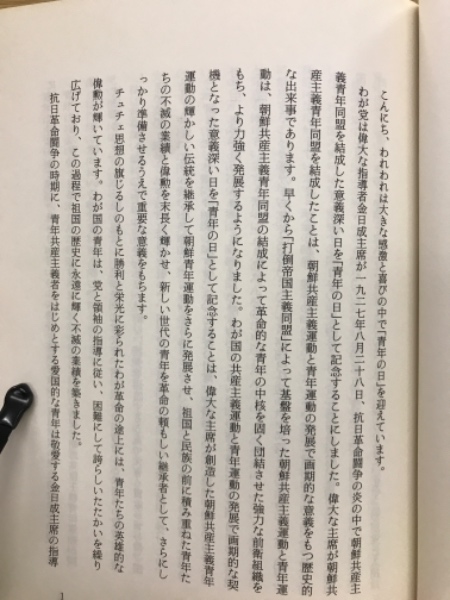 こんにち、われわれは大きな感激と喜びの中で「青年の日」を迎えています。
わが党は偉大な指導者金日成主席が一九二七年八月二十八日、抗日革命闘争の炎の中で朝鮮共産主
義青年同盟を結成した意義深い日を「青年の日」として記念することにしました。偉大な主席が朝鮮共
産主義青年同盟を結成したことは、朝鮮共産主義運動と青年運動の発展で画期的な意義をもつ歴史的
な出来事であります。早くから「打倒帝国主義同盟」によって基盤を培った朝鮮共産主義運動と青年運
動は、朝鮮共産主義青年同盟の結成によって革命的な青年の中核を固く団結させた強力な前衛組織を
もち、より力強く発展するようになりました。わが国の共産主義運動と青年運動の発展で画期的な契
機となった意義深い日を「青年の日」として記念することは、偉大な主席が創造した朝鮮共産主義青年
運動の輝かしい伝統を継承して朝鮮青年運動をさらに発展させ、祖国と民族の前に積み重ねた青年た
ちの不滅の業績と偉勲を末長く輝かせ、新しい世代の青年を革命の頼もしい継承者として、さらにし
っかり準備させるうえで重要な意義をもちます。
チュチェ思想の旗じるしのもとに勝利と栄光に彩られたわが革命の途上には、青年たちの英雄的な
偉勲が輝いています。わが国の青年は、党と領袖の指導に従い、困難にして誇らしいたたかいを繰り
広げており、この過程で祖国の歴史に永遠に輝く不滅の業績を築きました。
抗日革命闘争の時期に、青年共産主義者をはじめとする愛国的な青年は敬愛する金日成主席の指導
1